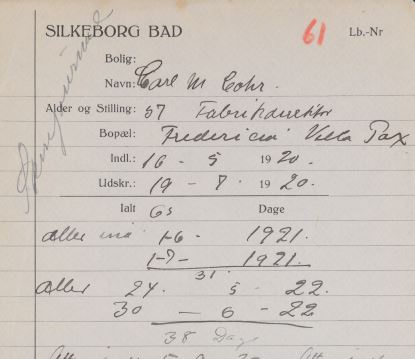 SILKEBORG BAD 61 Lb.-Nr
Bolig:
Navn: Carl M Cohr.
Alder og Stilling: 57 Fabrikdirektör
Bopæl: Fredericia Villa Pax
Indl.: 16 - 5 1920.
Udskr.: 19 - 7. 1920.
Ialt 65 Dage
1-6- 1921.
1-7- 1921.
31.
atter 24. 5 - 22.
30 - 6 - 22
38 Dage